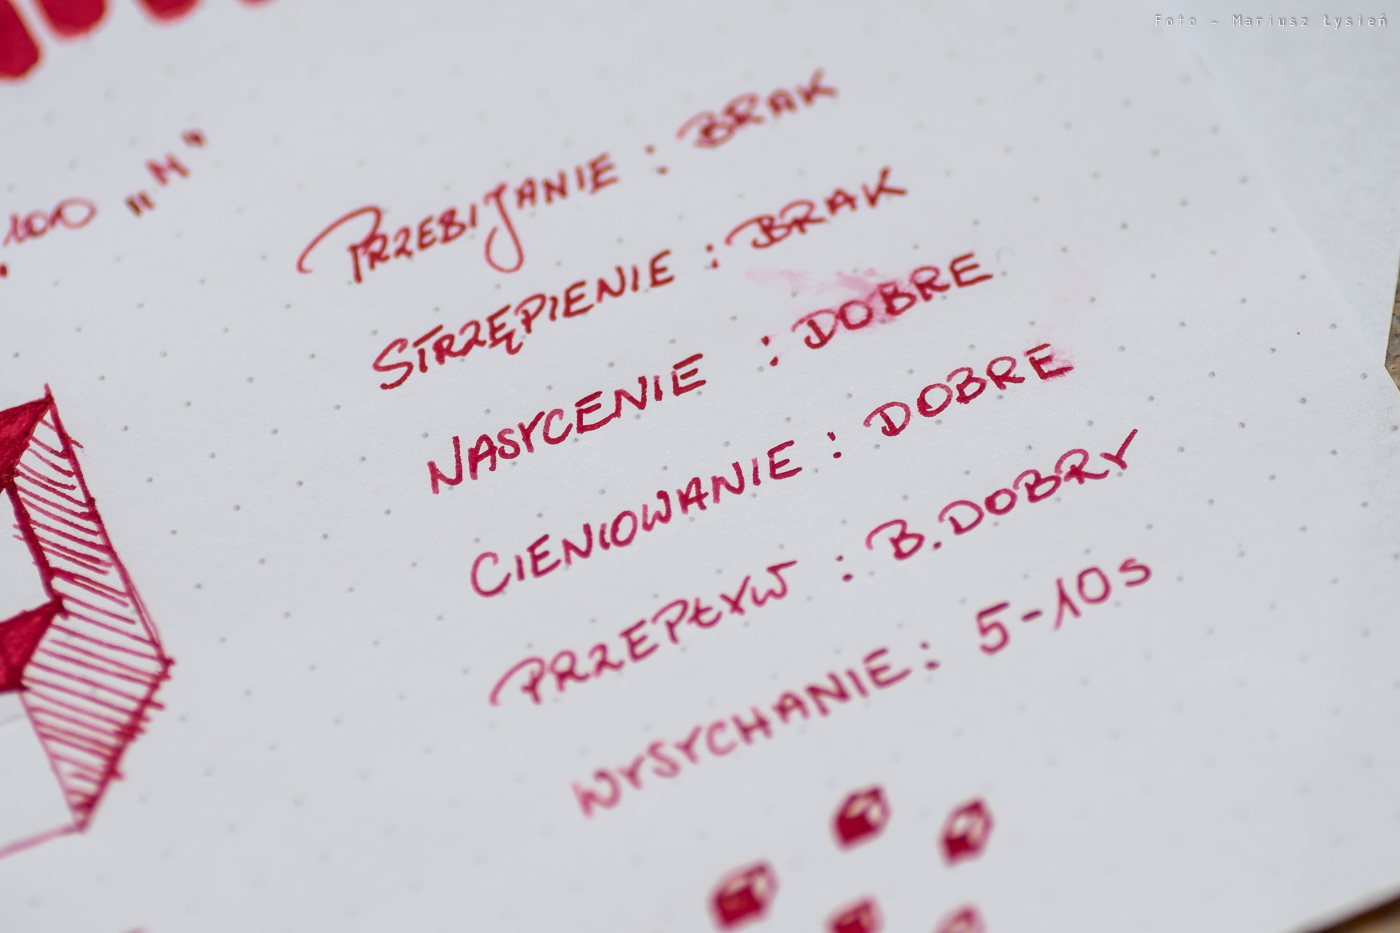 Foto - Mariusz Łysień
100 „M"
PRZEBIJANIE : BRAK
STRZĘPIENIE : BRAK
NASYCENIE : DOBRE
CIENIOWANIE : DOBRE
PRZEPŁYW : B.DOBRY
WYSYCHANIE : 5-10s